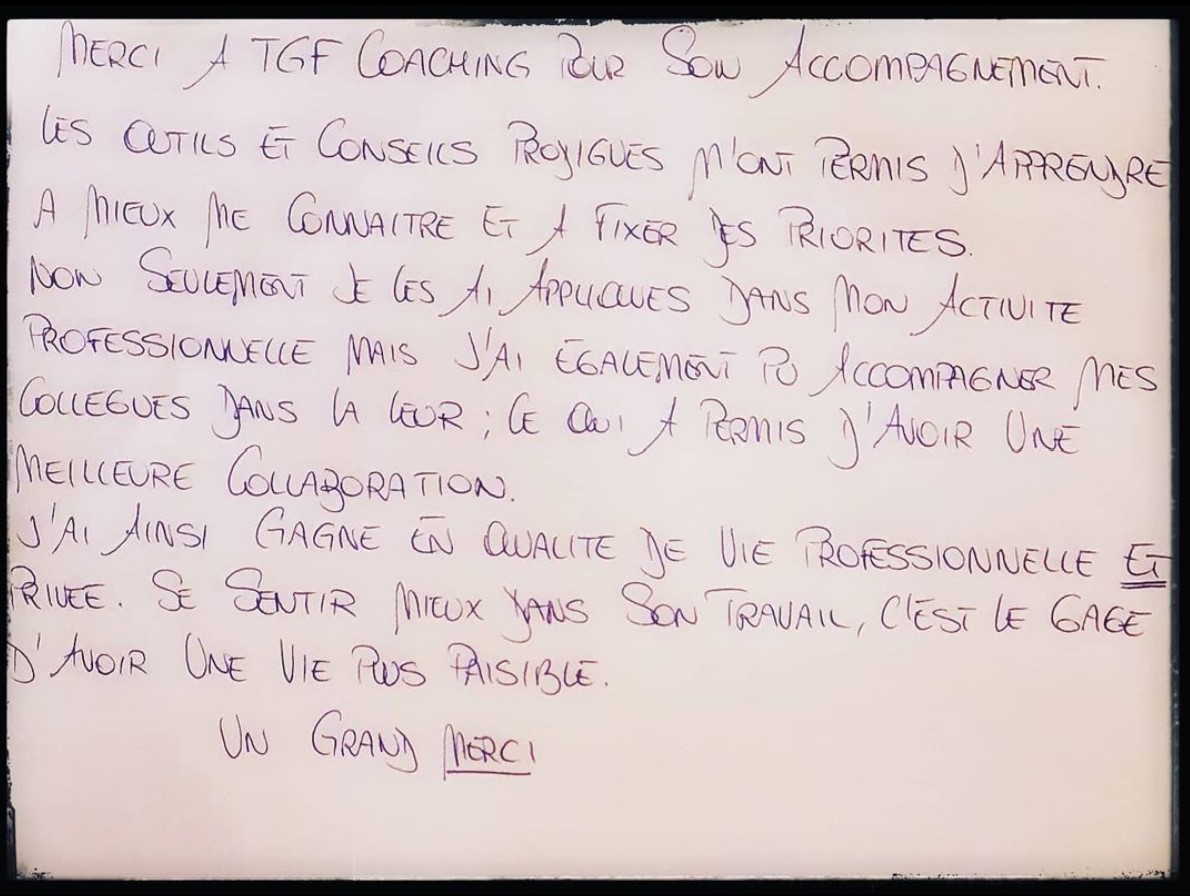 MERCI A TGF COACHING POUR SON ACCOMPAGNEMENT.
LES OUTILS ET CONSEILS PRODIGUES M'ONT PERMIS D'APPRENDRE
A MIEUX ME CONNAITRE ET A FIXER DES PRIORITES.
NON SEULEMENT JE LES AI APPLIQUES DANS MON ACTIVITE
PROFESSIONNELLE MAIS J'AI EGALEMENT PU ACCOMPAGNER MES
COLLEGUES DANS LA LEUR ; CE QUI A PERMIS D'AVOIR UNE
MEILLEURE COLLABORATION.
J'AI AINSI GAGNE EN QUALITE DE VIE PROFESSIONNELLE ET
PRIVEE. SE SENTIR MIEUX DANS SON TRAVAIL, C'EST LE GAGE
D'AVOIR UNE VIE PLUS PAISIBLE.
UN GRAND MERCI